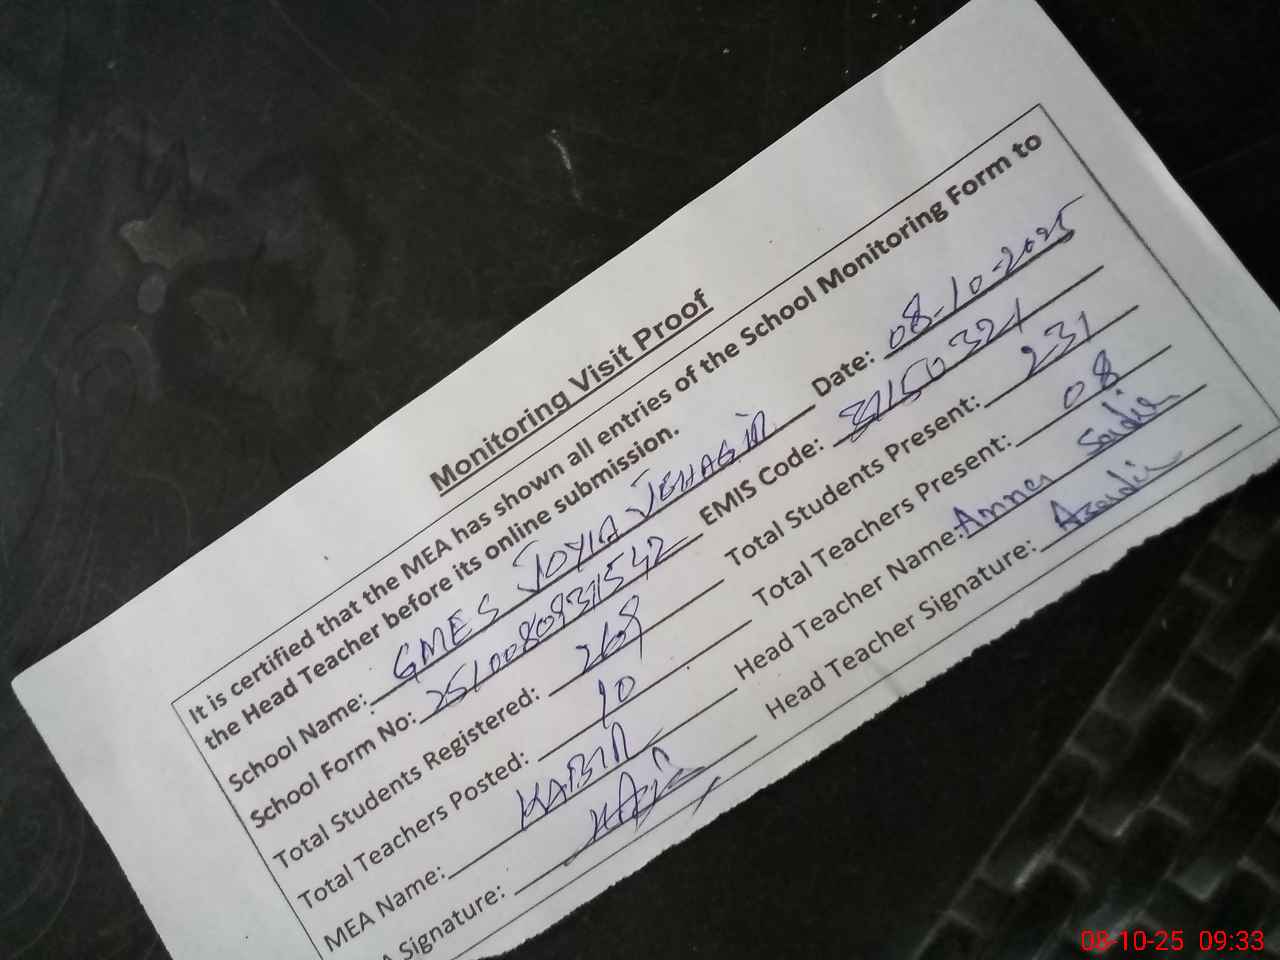 Monitoring Visit Proof
It is certified that the MEA has shown all entries of the School Monitoring Form to
the Head Teacher before its online submission.
School Name: GMES JOYIA Date: 08-10-2025
School Form No: EMIS Code:
Total Students Registered: 268 Total Students Present: 231
Total Teachers Posted: 10 Total Teachers Present: 08
MEA Name: KABIR Head Teacher Name:
A Signature: Head Teacher Signature:
08-10-25 09:33